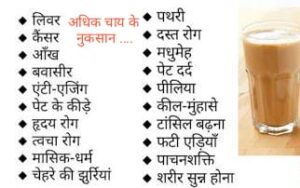 अधिक चाय के
नुकसान ....
◆ लिवर
◆ कैंसर
◆ आँख
◆ बवासीर
◆ एंटी-एजिंग
◆ पेट के कीड़े
◆ हृदय रोग
◆ त्वचा रोग
◆ मासिक-धर्म
◆ चेहरे की झुर्रियां
◆ पथरी
◆ दस्त रोग
◆ मधुमेह
◆ पेट दर्द
◆ पीलिया
◆ कील-मुंहासे
◆ टांसिल बढ़ना
◆ फटी एड़ियाँ
◆ पाचनशक्ति
◆ शरीर सुन्न होना